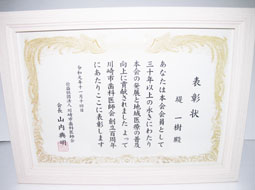 表彰状
堤 一樹 殿
あなたは本会会員として
三十年以上の永きにわたり
本会の発展と地域医療の普及
向上に貢献されました よって
川崎市歯科医師会創立百周年
にあたりここに表彰します
令和元年十一月十四日
公益社団法人 川崎市歯科医師会
会長 山内典明